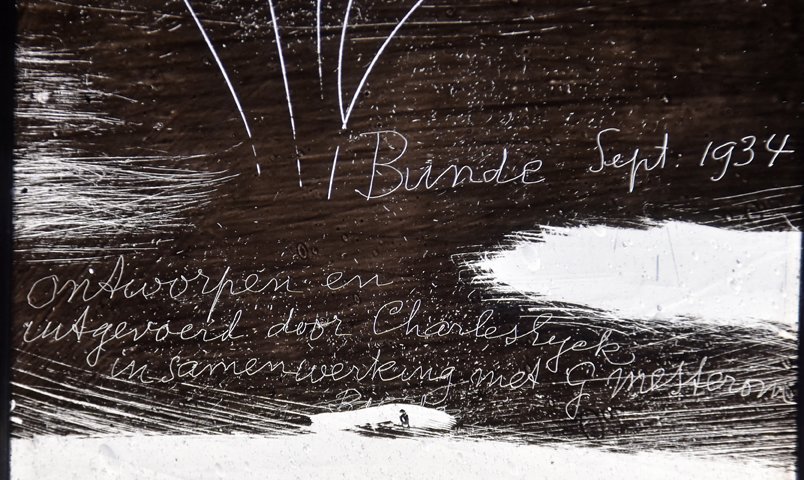 Bunde Sept. 1934
ontworpen en
uitgevoerd door Charles Eyck
in samenwerking met G mesterom